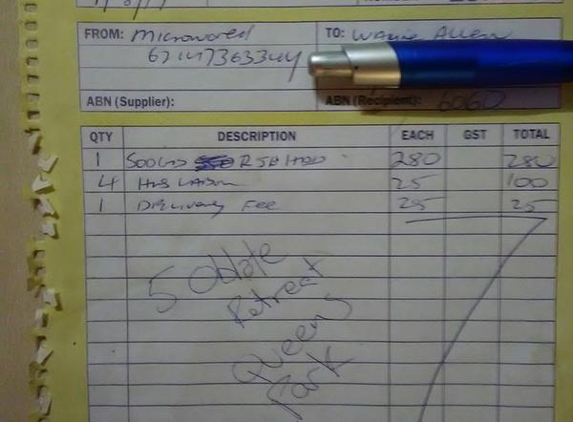 FROM: Microwored TO: Wayne Allen
ABN (Supplier): ABN (Recipient): 6060
QTY DESCRIPTION EACH GST TOTAL
1 280 280
4 Hrs Labour 25 100
1 Delivery Fee 25 25
5 Oblate
Retreat
Queens
Park